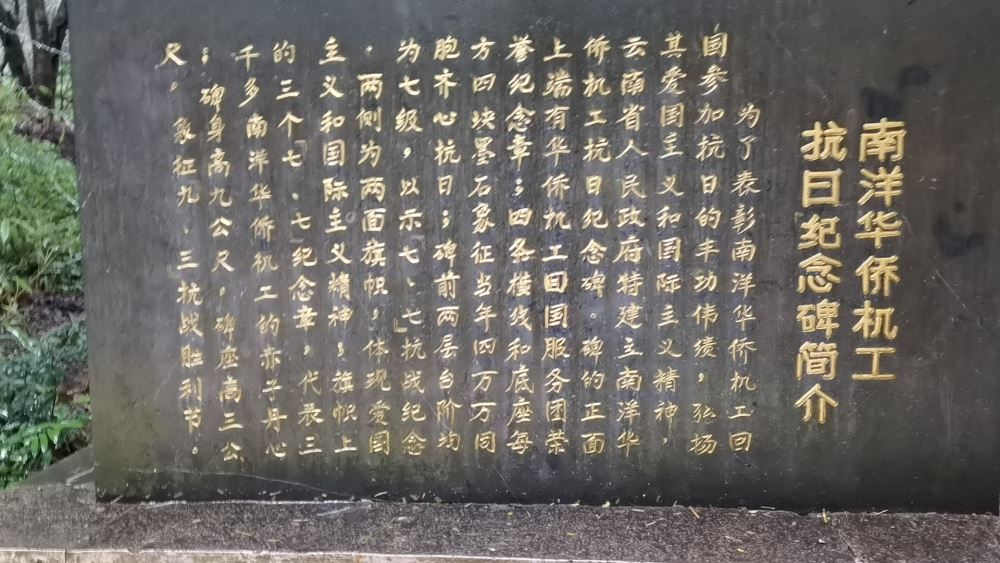 南洋华侨机工
抗日纪念碑简介
为了表彰南洋华侨机工回
国参加抗日的丰功伟绩，弘扬
其爱国主义和国际主义精神，
云南省人民政府特建立南洋华
侨机工抗日纪念碑。碑的正面
上端有华侨机工回国服务团荣
誉纪念章；四条横线和底座每
方四块墨石象征当年四万万同
胞齐心抗日；碑前两层台阶均
为七级，以示『七、七』抗战纪念
。两侧为两面旗帜，体现爱国
主义和国际主义精神；旗帜上
的三个『七、七』纪念章，代表三
千多南洋华侨机工的赤子丹心
；碑身高九公尺，碑座高三公
尺。象征九、三抗战胜利节。